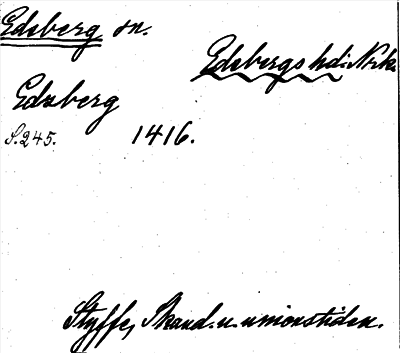 Edsberg sn.
Edsbergs hd: Nrk.
Edzberg
S. 245. 1416.
Styffe, Skand. u. unionstiden.